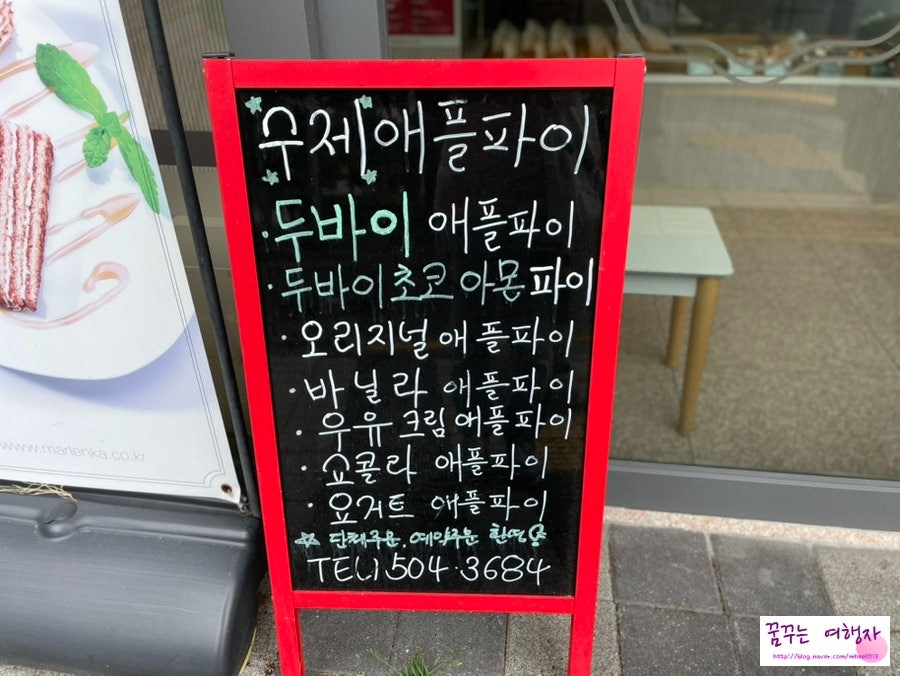 수제애플파이
·두바이 애플파이
·두바이초코 아몬파이
·오리지널 애플파이
·바닐라 애플파이
·우유크림 애플파이
·쇼콜라 애플파이
·요거트 애플파이
☆ 단체주문, 예약주문 환영
TEL) 504·3684
www.marlenka.co.kr
꿈꾸는 여행자
http://blog.naver.com/mhee0713